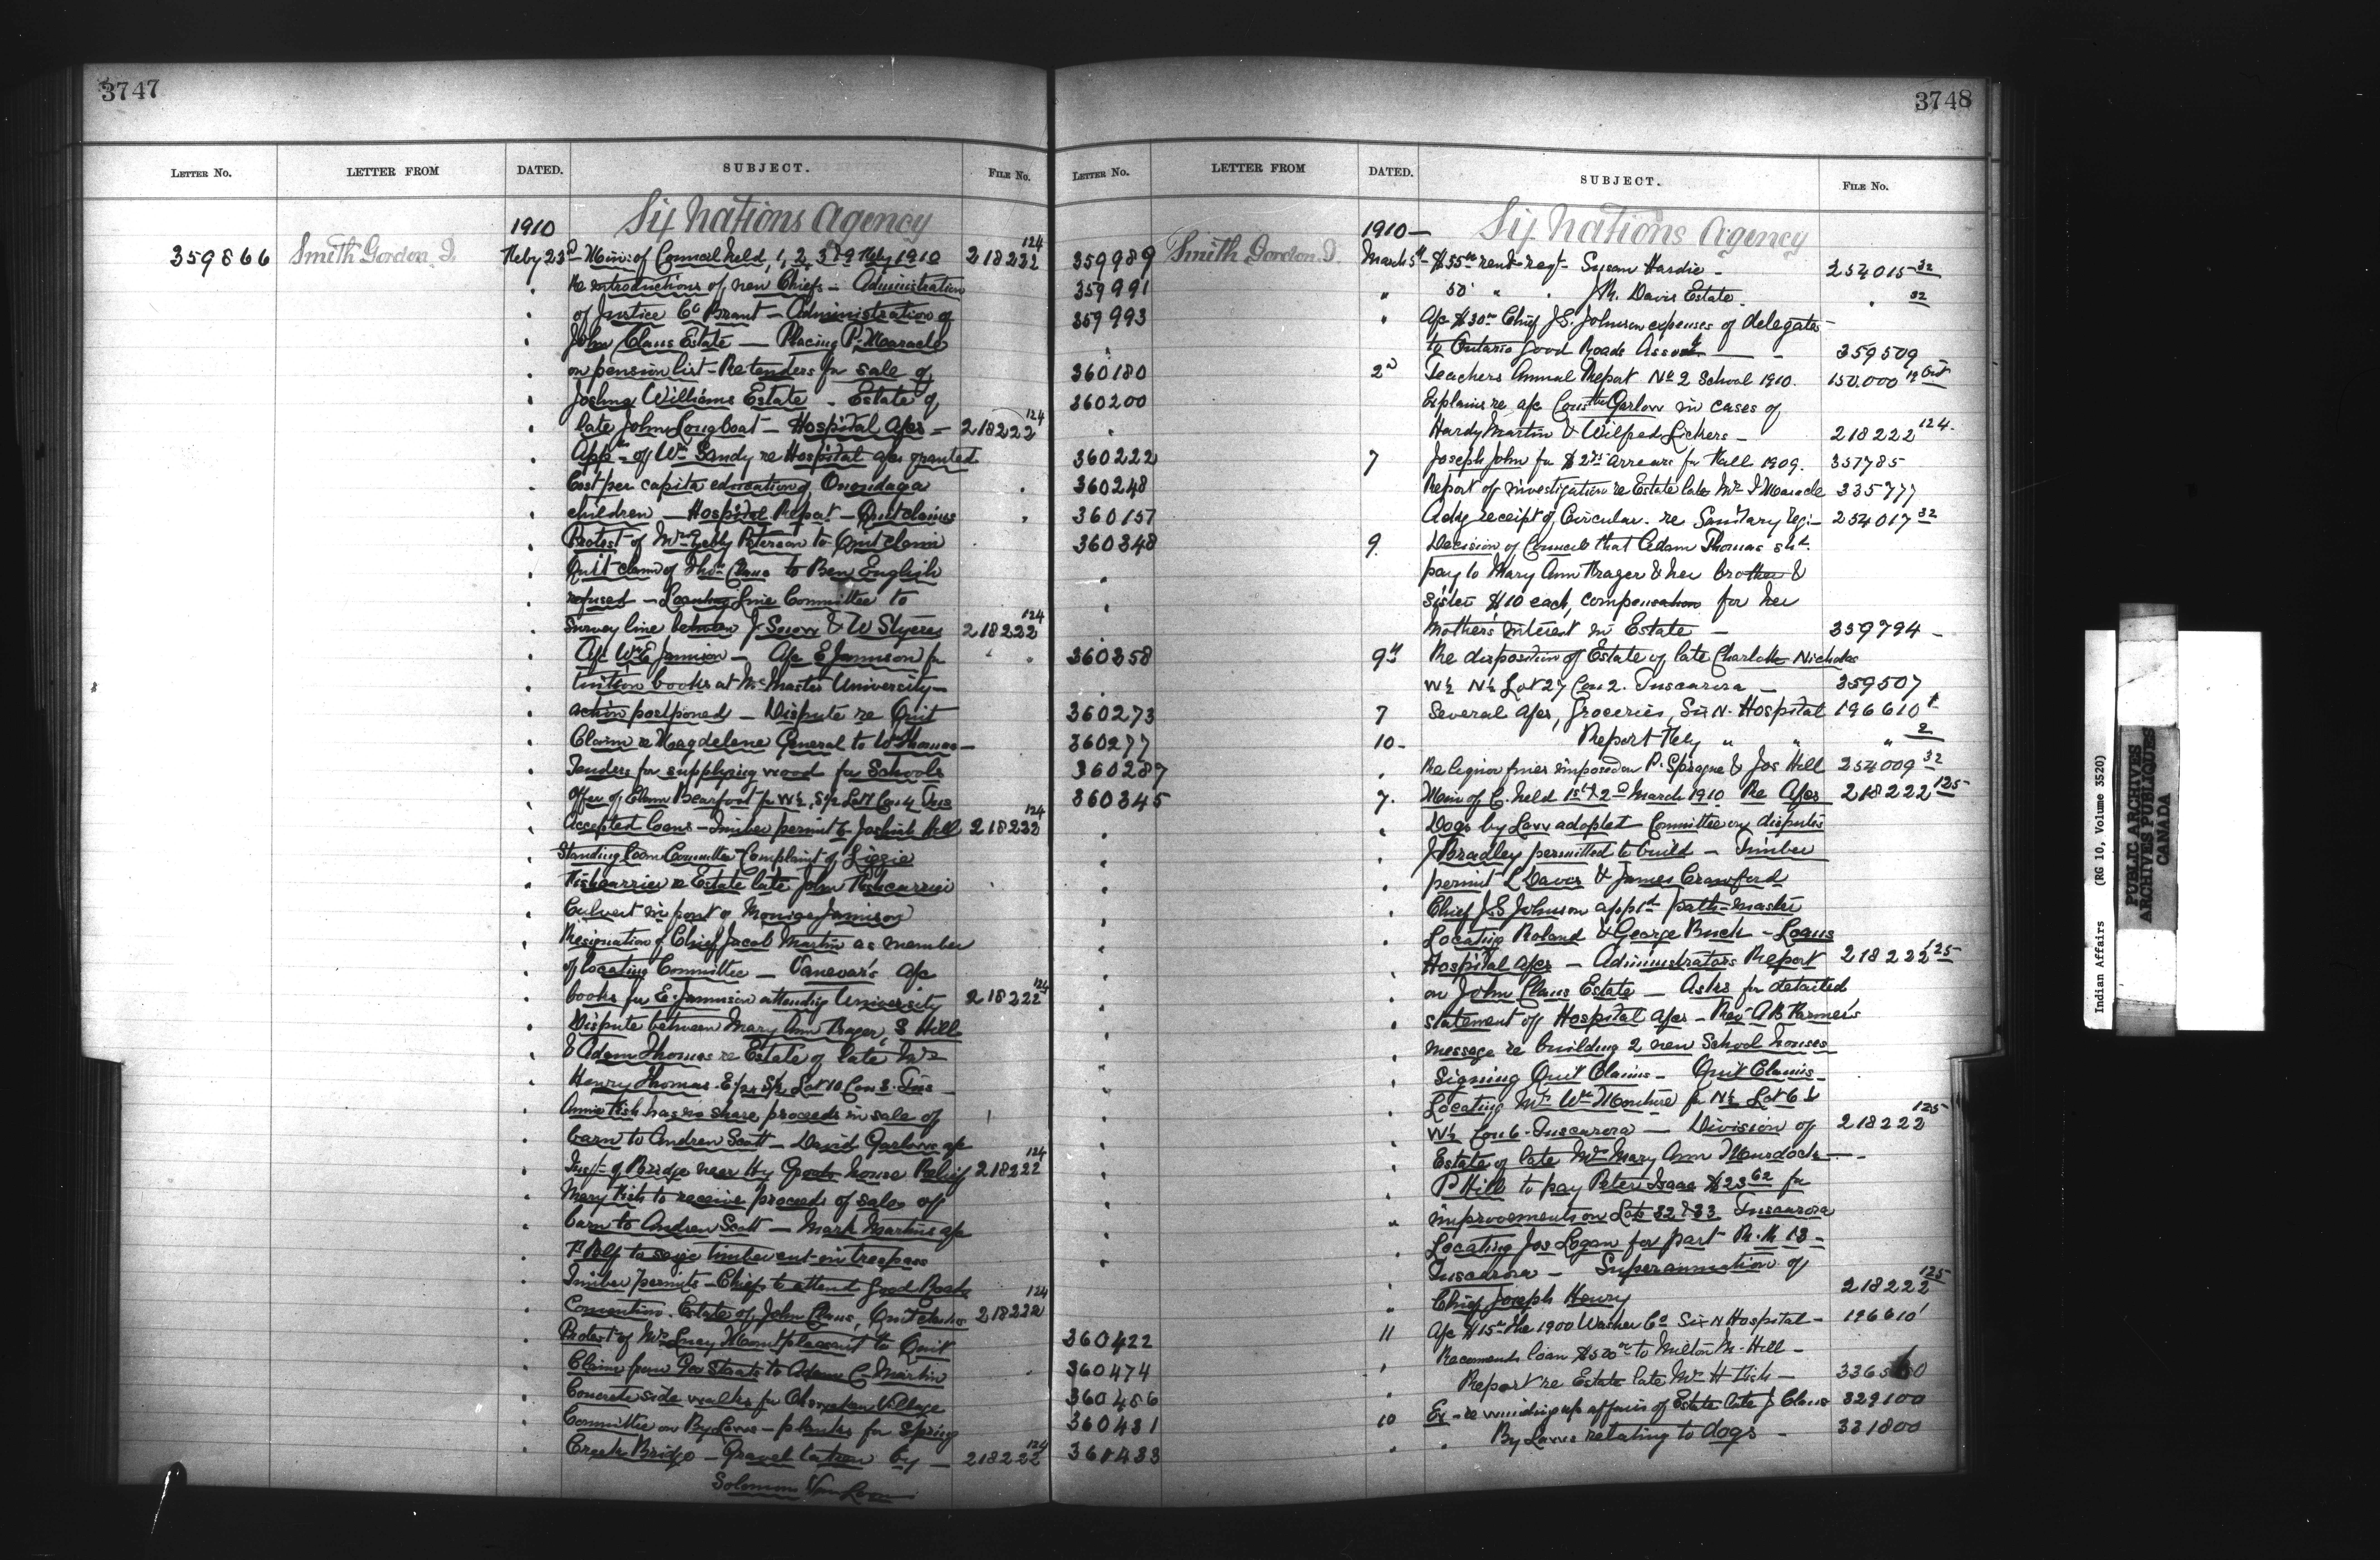 3747
LETTER NO. LETTER FROM DATED. SUBJECT. FILE NO.
1910 Six Nations Agency
359866 Smith Gordon J. Feby 23d Min: of Council held, 1, 2, 3 & 9 Feby 1910 218222 124
Re introductions of new Chiefs - Administration
of Justice Co Brant - Administration of
John Claus Estate - Placing P. Maracle
on pension list - Re tenders for sale of
Joshua Williams Estate - Estate of
late John Longboat - Hospital a/cs - 218222 124
App. of Wm Sandy re Hospital a/cs granted
Cost per capita education of Onondaga
children - Hospital Report - Quit claims
Protest of Mrs Peterson to Quit claim
Quit claim of Thos Claus to Ben English
refused - Line Committee to
Survey line between J. Snow & W Styres 218222 124
A/c W E Jamison - A/c E Jamison for
tuition books at McMaster University -
action postponed - Dispute re Quit
Claim re Magdelene General to W Thomas -
Tenders for supplying wood for Schools
Offer of Elam Bearfoot for W½, S½ Lot Con 4 Tus
Accepted Loans - Timber permit to Josiah Hill 218222 124
Standing Loan Committee - Complaint of Lizzie
Fishcarrier re Estate late John Fishcarrier
Culvert in front of Jamison
Resignation of Chief Jacob Martin as member
of locating Committee - Vanevar's a/c
books for E. Jamison attending University 218222 124
Dispute between Mary Ann Frager, S Hill
& Adam Thomas re Estate of late Mrs
Henry Thomas - E½ S½ Lot 10 Con 3 - Tus
Annie Fish has no share proceeds in sale of
barn to Andrew Scott - David Garlow a/c
Insp. of Bridge near house Relief 218222 124
Mary Fish to receive proceeds of sale of
barn to Andrew Scott - Mark Martins a/c
to seize timber cut in trespass
Timber permits - Chiefs to attend Good Roads
Convention. Estate of John Claus, Quit claims 218222 124
Protest of Mrs Lucy Mountpleasant to Quit
Claim from Geo Staats to Adam C Martin
Concrete side walks for Ohsweken Village
Committee on By Laws - planks for Spring
Creek Bridge - Gravel taken by - 218222 124
Solomon Van Loon
3748
LETTER NO. LETTER FROM DATED. SUBJECT. FILE NO.
1910 - Six Nations Agency
359989 Smith Gordon J. March 5th - $55.00 rent regt - Susan Hardie - 254015 32
359991 " 50 " " J.R. Davis Estate. " 32
359993 " A/c $30.00 Chief J.S. Johnson expenses of delegate -
to Ontario Good Roads Assoct - 359509
360180 2d Teachers Annual Report No 2 School 1910. 150,000 19 Ont
360200 Explains re a/c Consth Garlow in cases of
Hardy Martin & Wilfred Lickers - 218222 124.
360222 7 Joseph John for $2.75 arrears for Fall 1909. 357785
360248 Report of investigation re Estate late Mrs J Maracle 335777
360157 Ackg receipt of Circular. re Sanitary reg: - 254017 32
360348 9. Decision of Council that Adam Thomas shd
pay to Mary Ann Frager & her brother &
sister $10 each, compensation for her
mother's interest in Estate - 359794 -
360358 9th Re disposition of Estate of late Charlotte Nicholas
W½ N½ Lot 27 Con 2. Tuscarora - 359507
360273 7 Several a/cs, Groceries, Six N. Hospital 196610 1
360277 10 - Report Feby " " " 2
360287 " Re liquor fines imposed on P. Sprague & Jos Hill 254009 32
360345 7. Min of C. held 1st & 2d March 1910 Re A/cs 218222 125
Dogs by Law adopted - Committee on disputes
J Bradley permitted to build - Timber
permit L Davis & James Crawford
Chief J.S Johnson apptd path-master
Locating Roland & George Buck - Loans
Hospital a/cs - Administrators Report 218222 125
on John Claus Estate - Asks for detailed
statement of Hospital a/cs - Rev A B Farmer's
message re building 2 new School houses
Signing Quit Claims - Quit Claims -
Locating Mrs Wm Monture for N½ Lot 6 &
W½ Con 6 - Tuscarora - Division of 218222 125
Estate of late Mrs Mary Ann Murdock -
P Hill to pay Peter Isaac $23.62 for
improvements on Lots 32 & 33 Tuscarora
Locating Jos Logan for part R. R 13 -
Tuscarora - Superannuation of
Chief Joseph Henry 218222 125
360422 11 A/c $15.00 The 1900 Washer Co Six N Hospital - 196610 1
360474 " Recomends loan $500.00 to Milton M. Hill -
360486 Report re Estate late Mrs H Fish -
360481 10 Ex - re winding up affairs of Estate late J Claus 329100
360483 " " By Laws relating to dogs - 331800
Indian Affairs (RG 10, Volume 3520)
PUBLIC ARCHIVES
ARCHIVES PUBLIQUES
CANADA